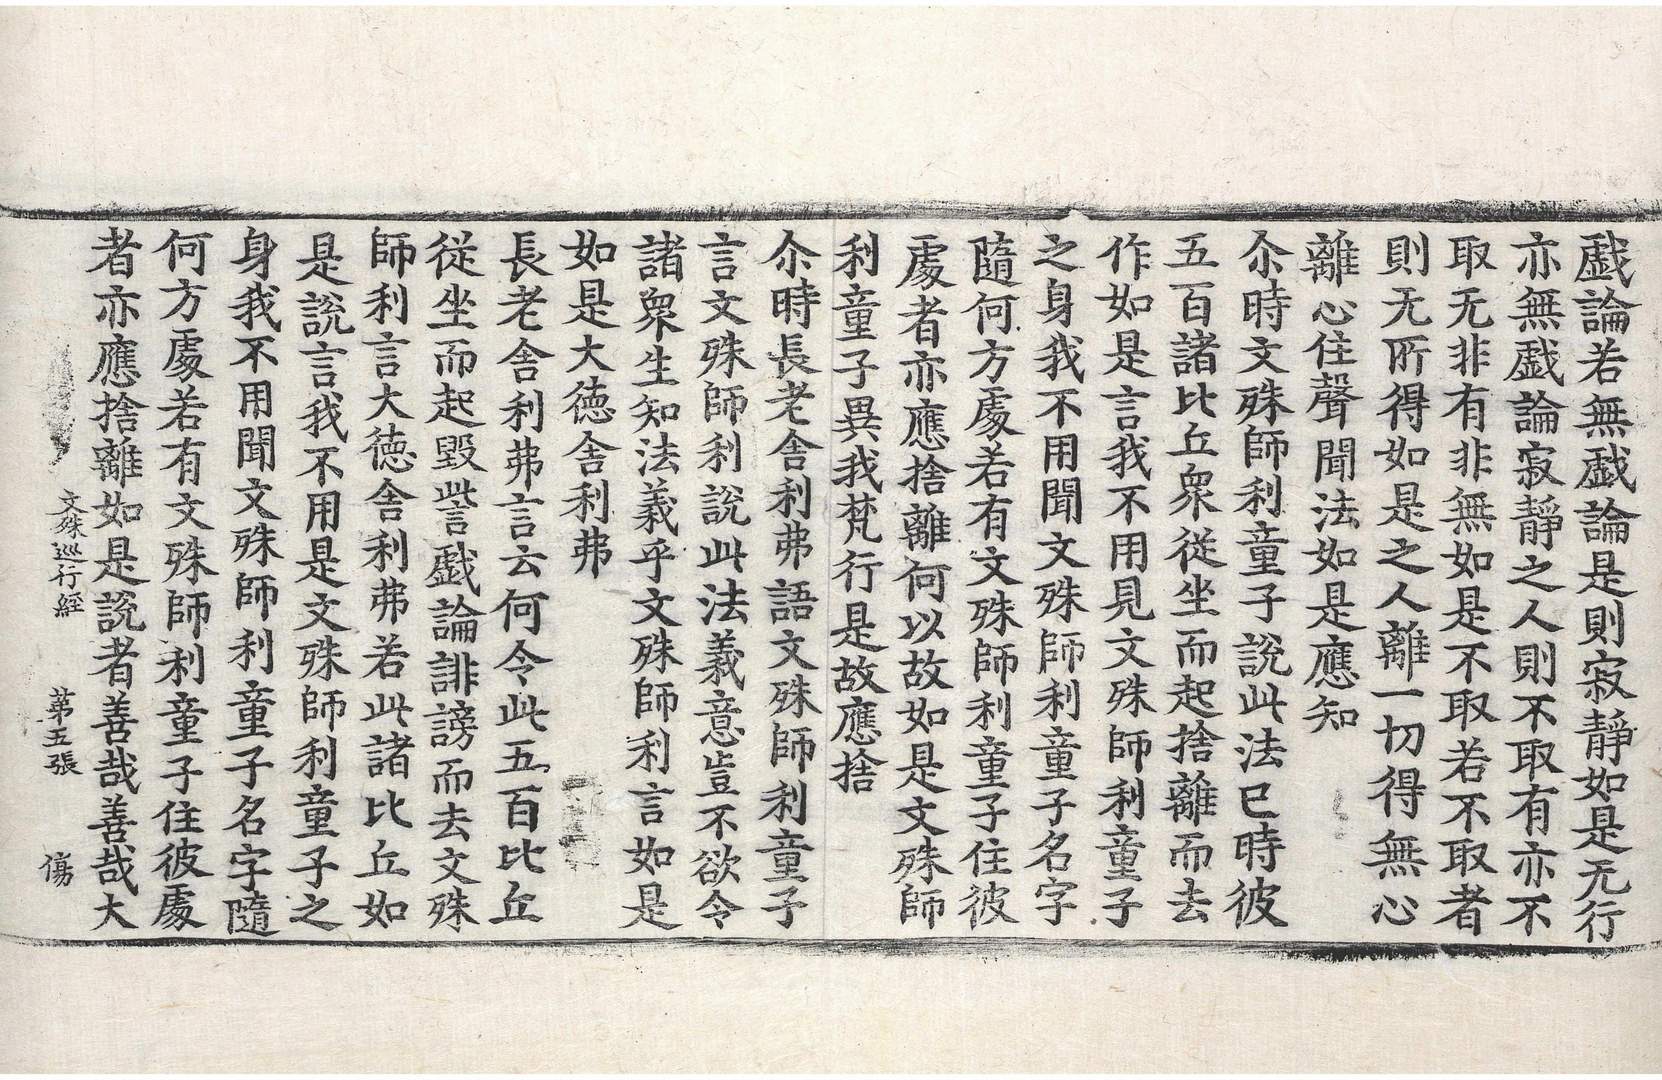 戱論若無戱論是則寂靜如是无行
亦無戱論寂靜之人則不取有亦不
取无非有非無如是不取若不取者
則无所得如是之人離一切得無心
離心住聲聞法如是應知
尒時文殊師利童子說此法已時彼
五百諸比丘衆從坐而起捨離而去
作如是言我不用見文殊師利童子
之身我不用聞文殊師利童子名字
隨何方處若有文殊師利童子住彼
處者亦應捨離何以故如是文殊師
利童子異我梵行是故應捨
尒時長老舍利弗語文殊師利童子
言文殊師利說此法義意豈不欲令
諸衆生知法義乎文殊師利言如是
如是大德舍利弗
長老舍利弗言云何令此五百比丘
從坐而起毀呰戱論誹謗而去文殊
師利言大德舍利弗若此諸比丘如
是說言我不用是文殊師利童子之
身我不用聞文殊師利童子名字隨
何方處若有文殊師利童子住彼處
者亦應捨離如是說者善哉善哉大
文殊巡行経 苐五張 傷